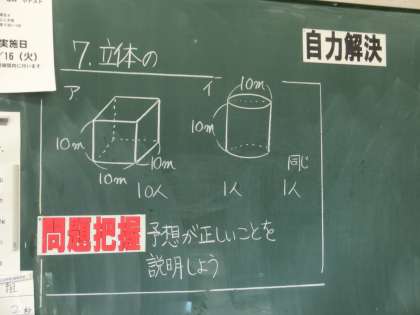 実施日
/16（火）
7. 立体の
自力解決
ア
イ
10m
10m
10m
10m
10m
10m
同じ
10人
1人
1人
問題把握
予想が正しいことを
説明しよう